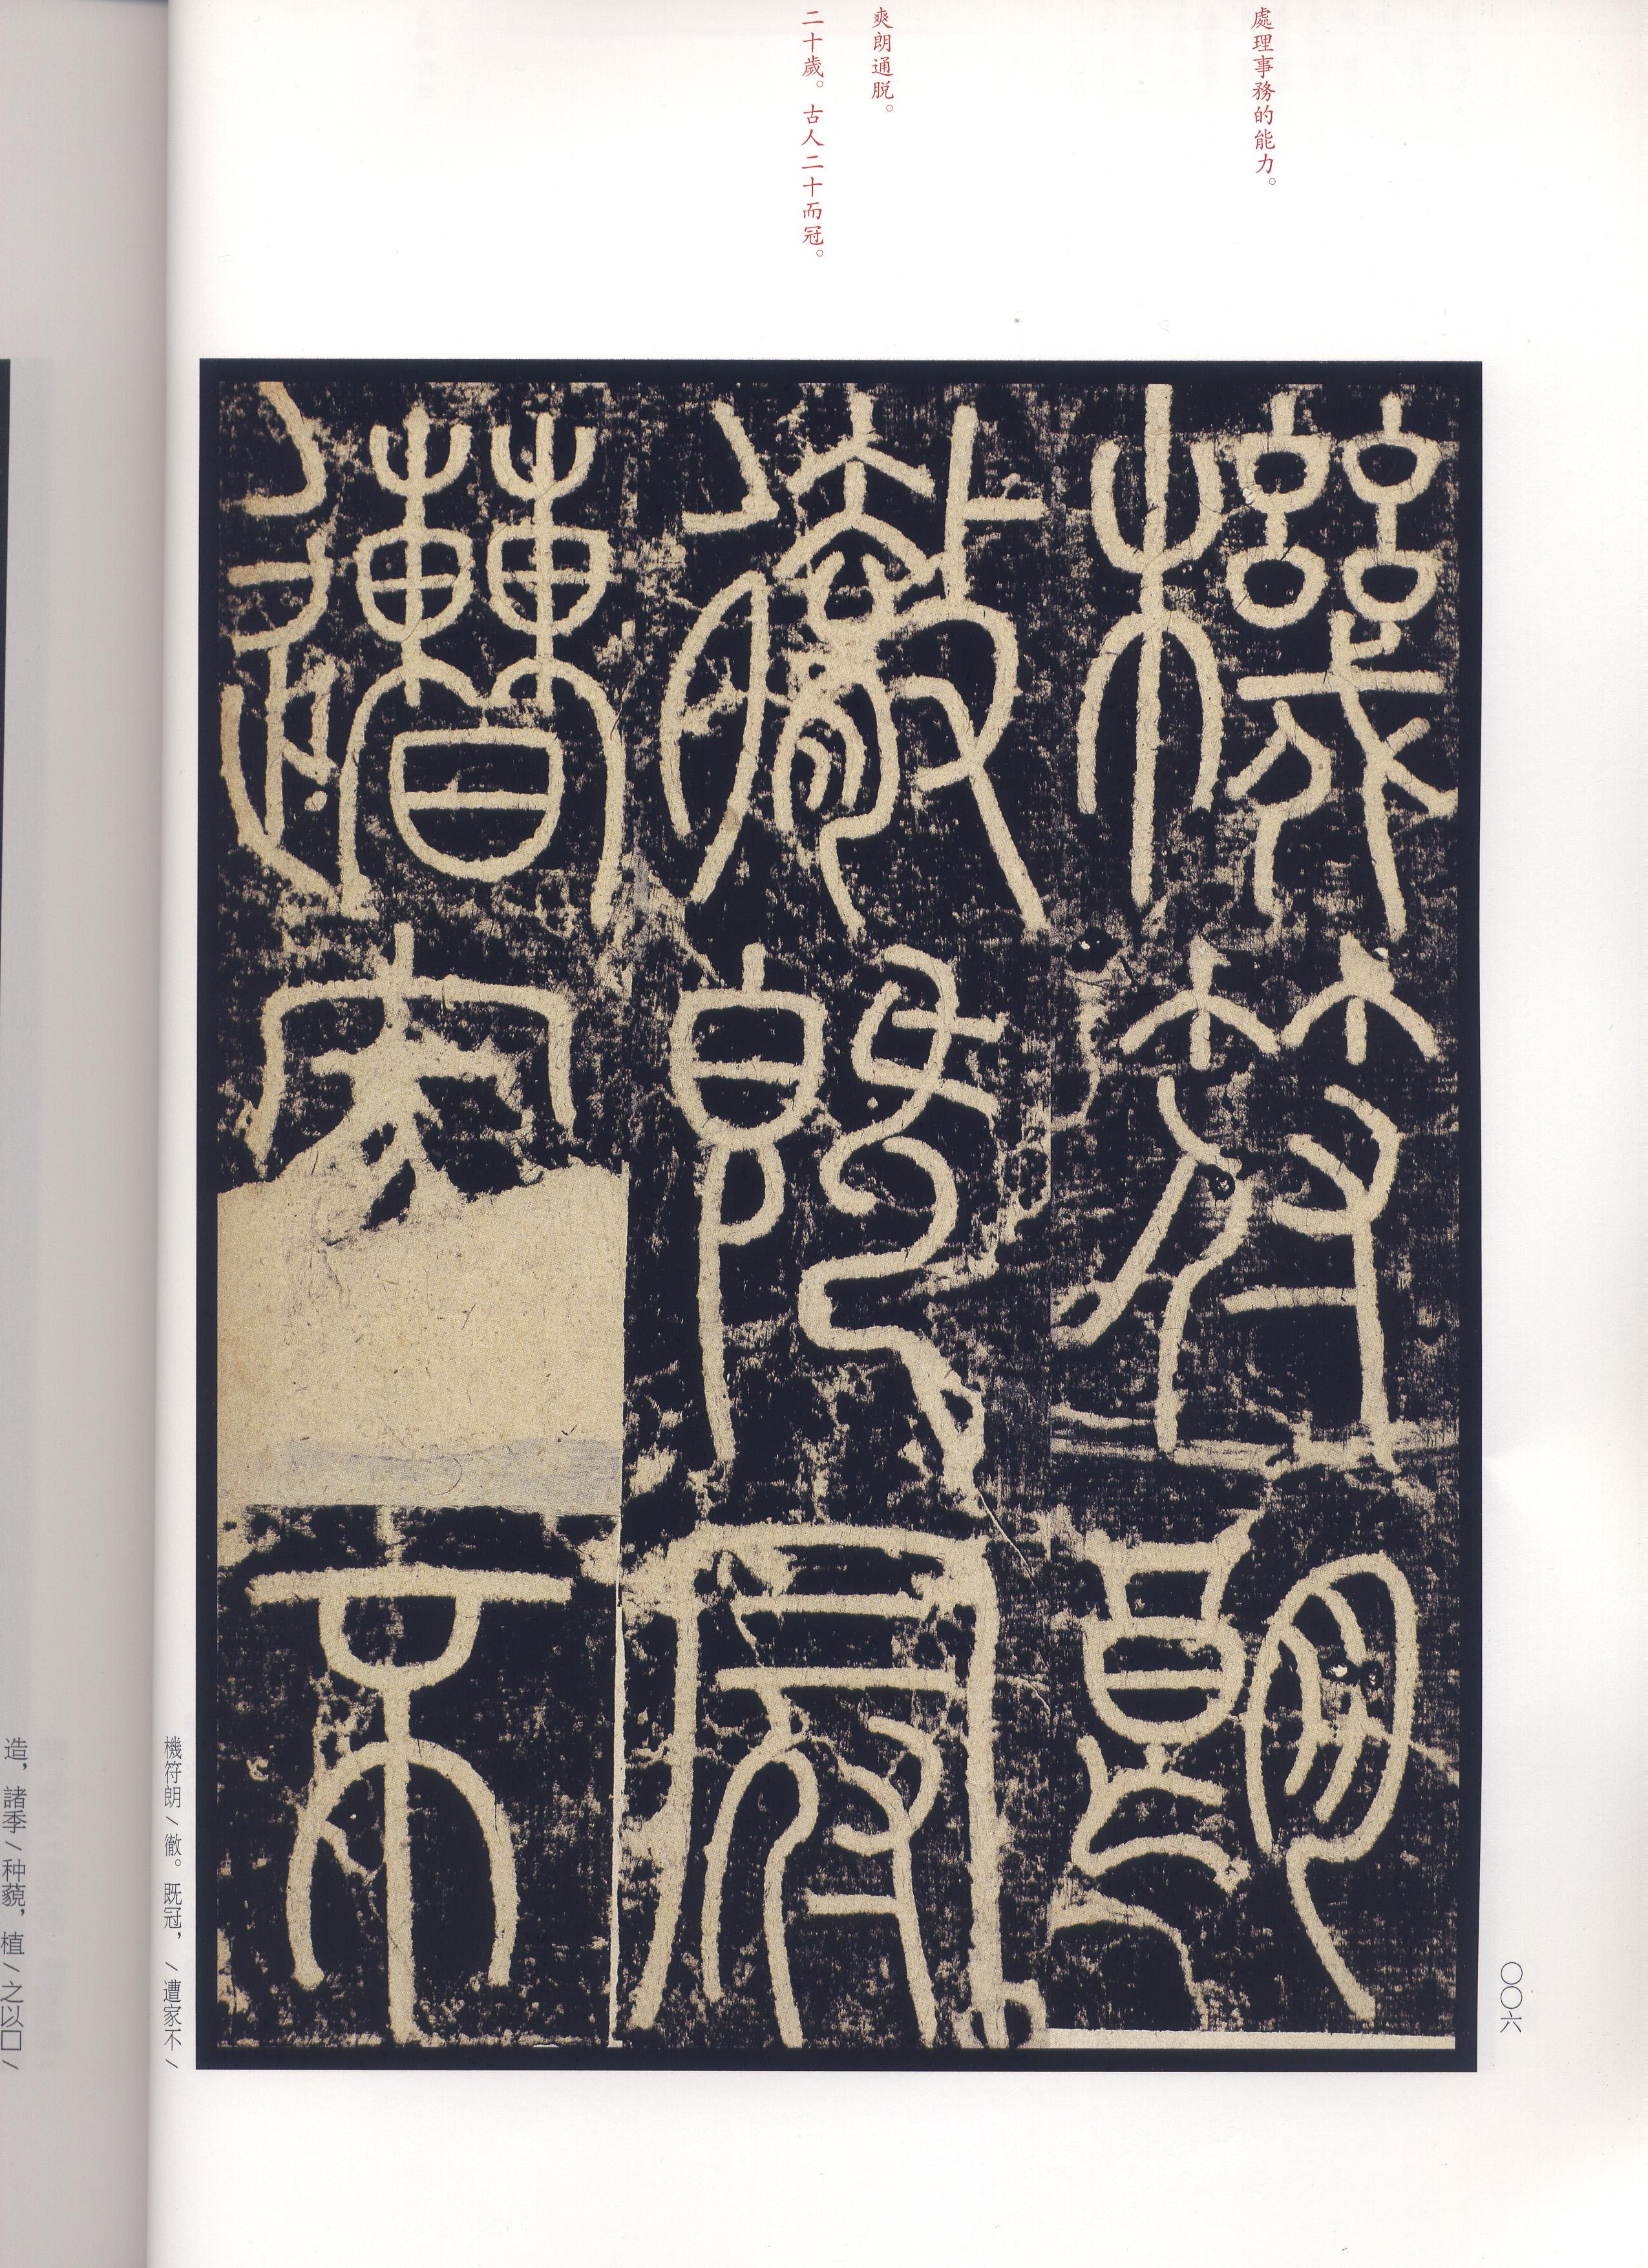 處理事務的能力。
爽朗通脱。
二十歲。古人二十而冠。
機符朗
徹既冠
遭家不
〇〇六
機符朗\徹。既冠，\遭家不\
造，諸季\种藐，植\之以口\